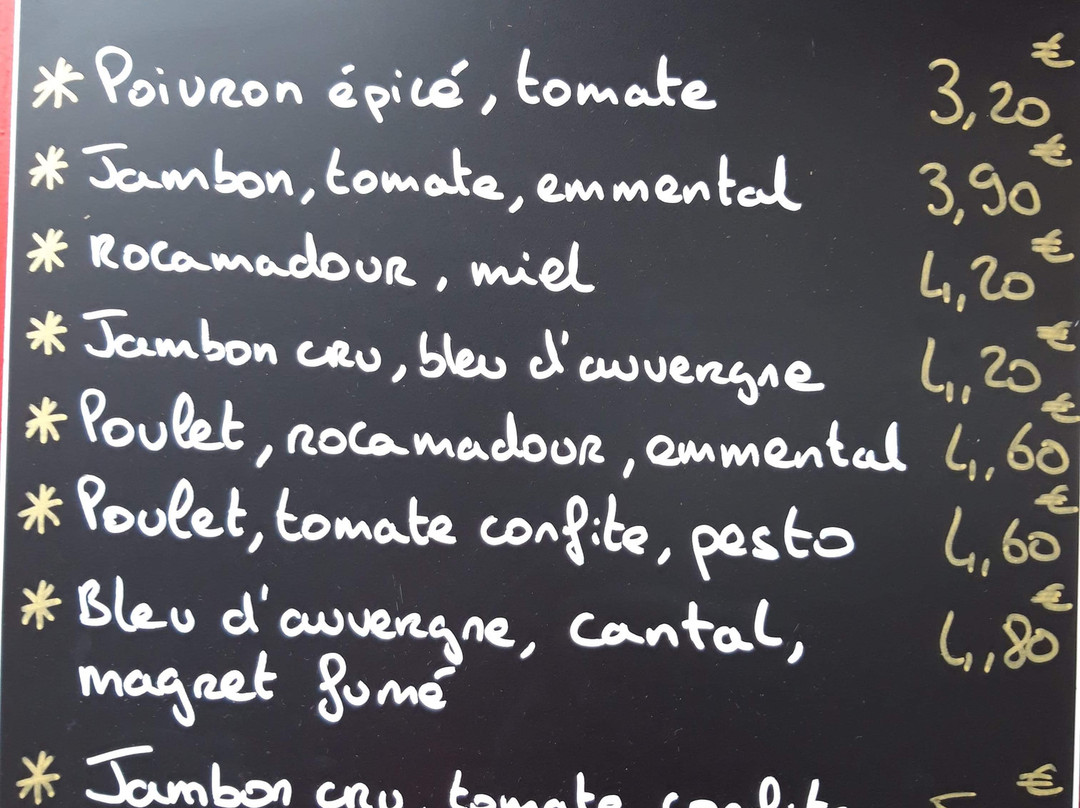 * Poivron épicé, tomate 3,20€
* Jambon, tomate, emmental 3,90€
* Rocamadour, miel 4,20€
* Jambon cru, bleu d'auvergne 4,20€
* Poulet, rocamadour, emmental 4,60€
* Poulet, tomate confite, pesto 4,60€
* Bleu d'auvergne, cantal, 4,80€
magret fumé
* Jambon cru, tomate confite €